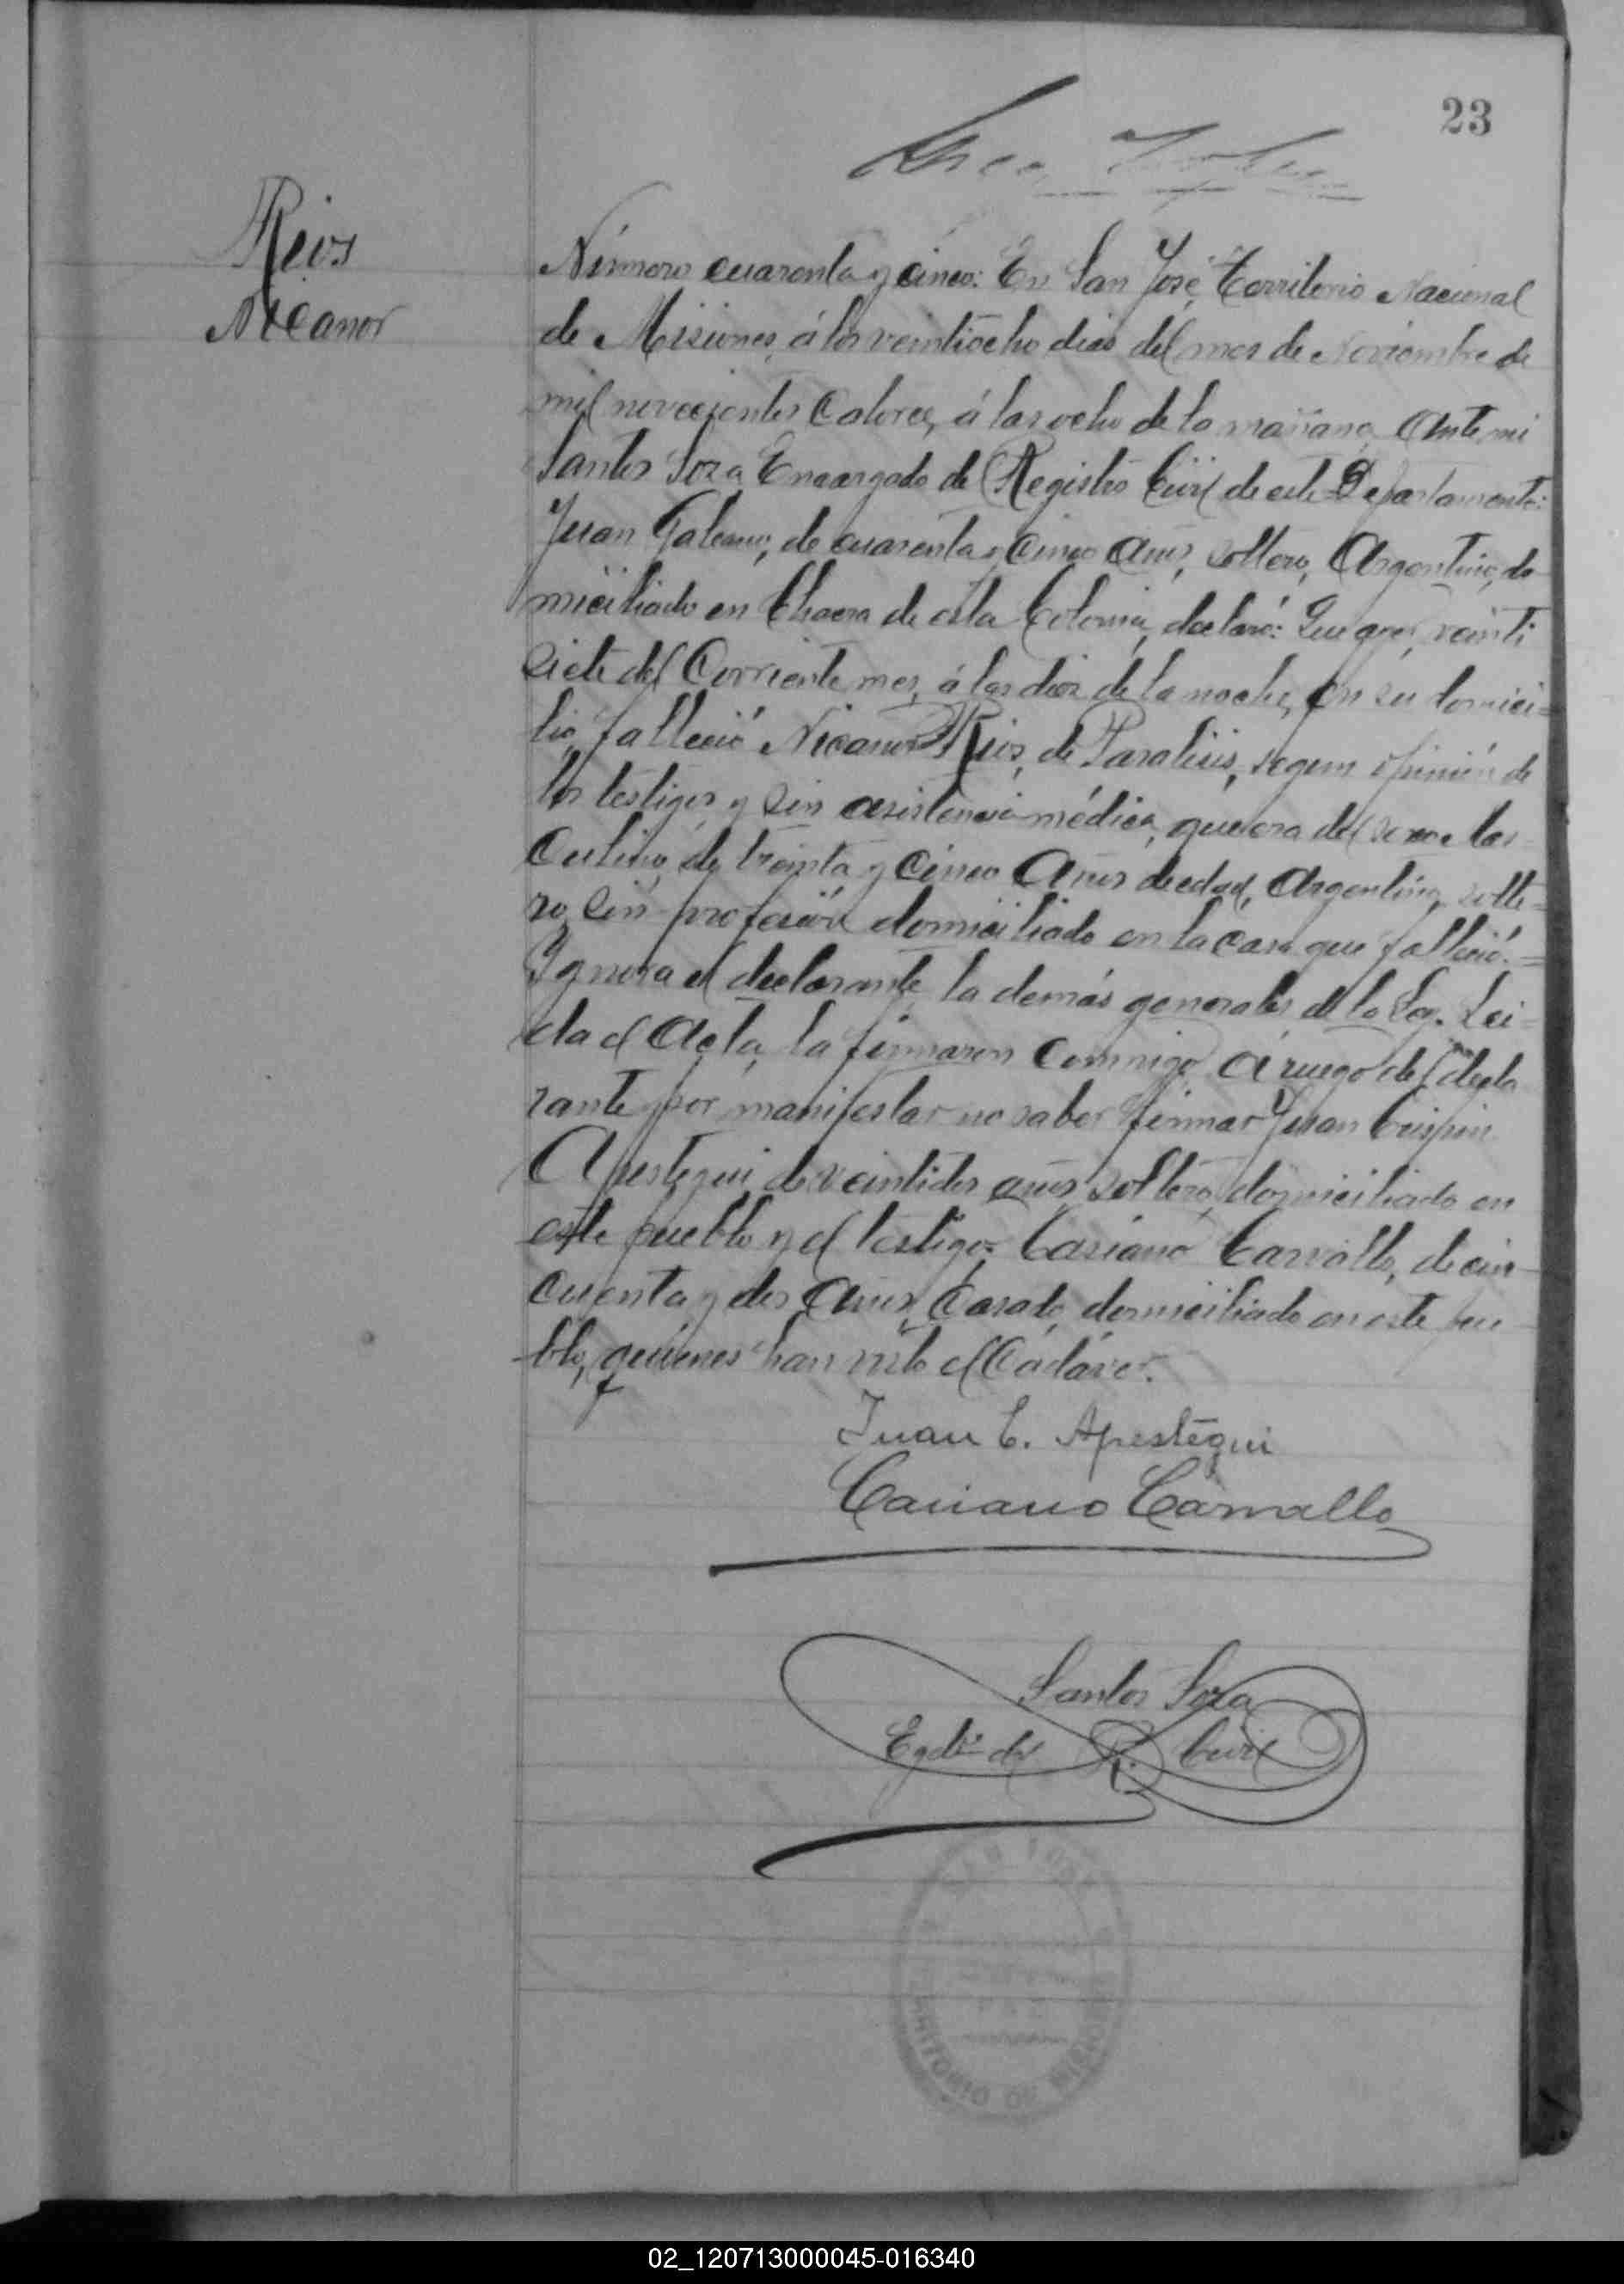 23
Rios
Nicanor
Número cuarenta y cinco: En San José, Territorio Nacional
de Misiones, á los veintiocho dias del mes de Noviembre de
mil novecientos Catorce, á las ocho de la mañana, Ante mi
Santos Soza Encargado de Registro Civil de este Departamento:
Juan Galeano, de cuarenta y Cinco Años, soltero, Argentino, do
miciliado en Chacra de esta Colonia, declaró: Que ayer, veinti
siete del Corriente mes, á las diez de la noche, en su domici=
lio, falleció Nicanor Rios, de Paralisis, segun opinión de
los testigos y Sin asistencia médica, que era del sexo Mas
Culino, de treinta y Cinco Años de edad, Argentino, solte=
ro, Sin profesión domiciliado en la Casa que falleció.=
Ignora el declarante la demás generales de la Ley. Lei=
da el Acta, la firmaron Conmigo, A ruego del decla
rante por manifestar no saber firmar Juan Crispin
Apestegui de veintidos años, soltero, domiciliado en
este pueblo y el testigo: Casiano Carvallo, de cin
cuenta y dos Años, Casado, domiciliado en este pue
blo, quienes han visto el Cadáver.
Juan C. Apestegui
Casiano Carvallo
Santos Soza
Egdo. del R. Civil
SAN JOSE
TERRITORIO DE MISIONES
02_120713000045-016340